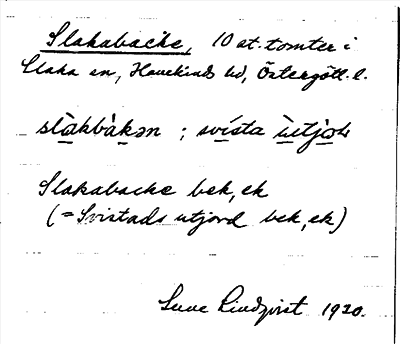 Slakabacke, 10 at. tomter i
Slaka sn, Hanekinds hd, Östergötl. l.
slàkbàkən ; svísta ùtjoḷ
Slakabacke bek, ek
(= Svistads utjord bek, ek)
Sune Lindqvist 1920.